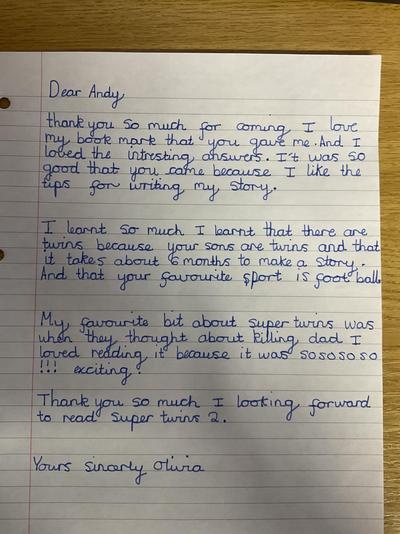 Dear Andy,
thank you so much for coming I love
my book mark that you gave me. And I
loved the intresting answers. It was so
good that you came because I like the
tips for writing my story.
I learnt so much I learnt that there are
twins because your sons are twins and that
it takes about 6 months to make a story.
And that your favourite sport is foot ball
My favourite bit about super twins was
when they thought about killing dad I
loved reading it because it was sosososo
!!! exciting!
Thank you so much I looking forward
to read super twins 2.
Yours sincerly Olivia